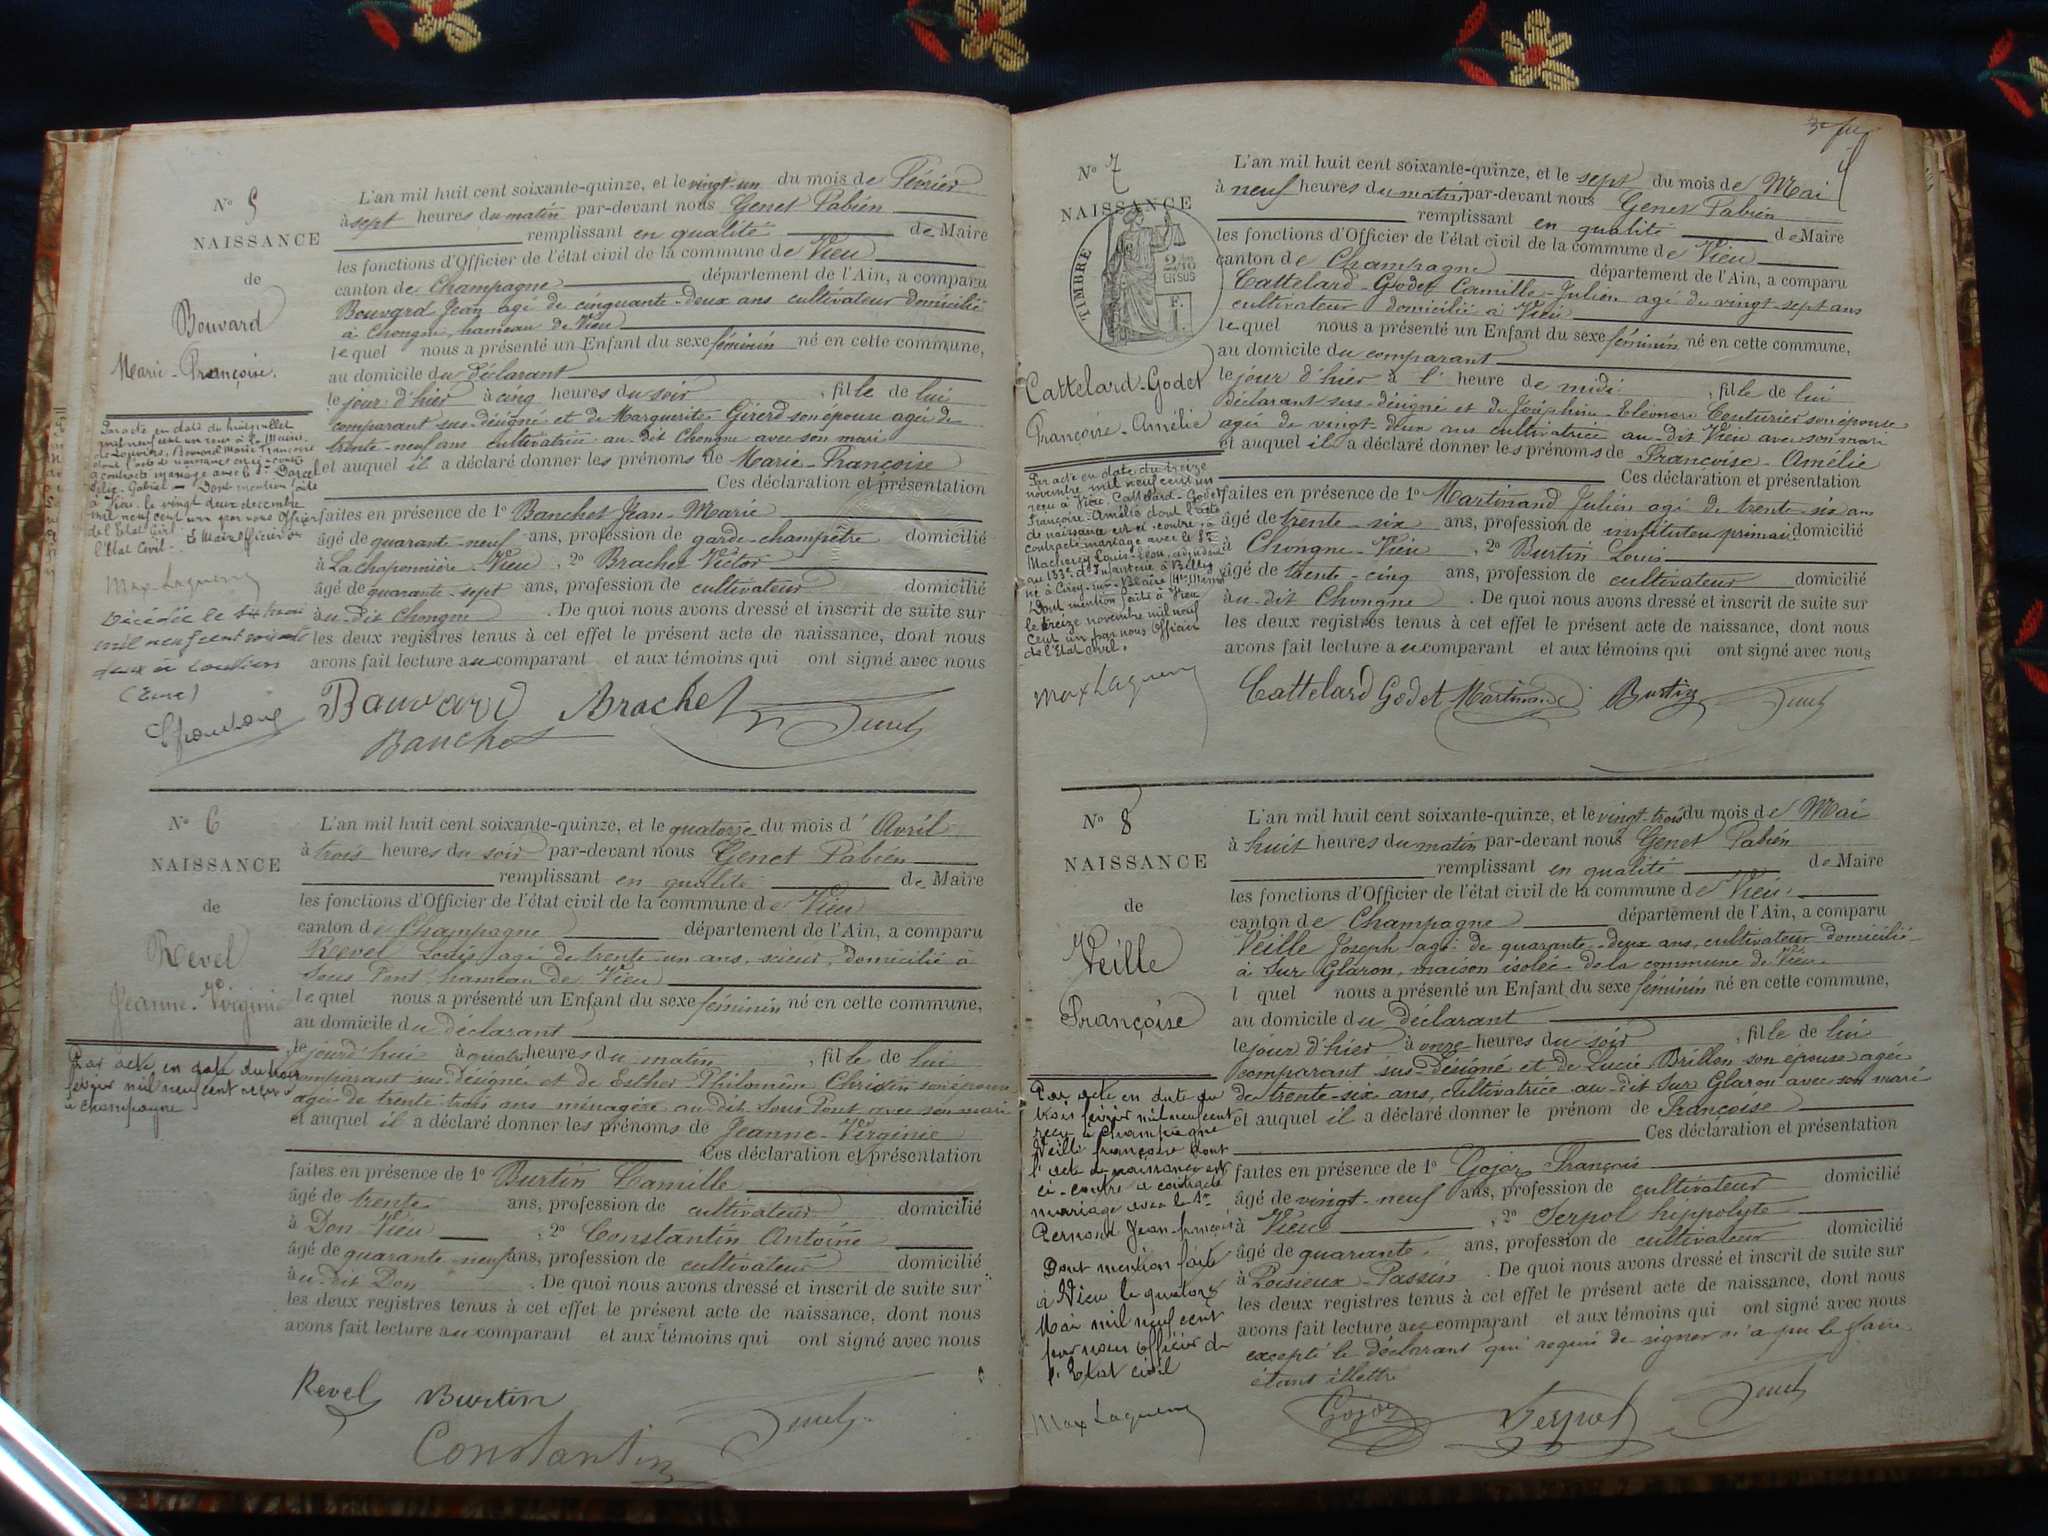 N° 5
NAISSANCE
de
Bouvard
Marie-Françoise.
Par acte en date du huit juillet
mil neuf cent un reçu à la Mairie
de Bouvard Marie Françoise
dont l'acte de naissance est ci-contre
a contracté mariage avec le Sr Darcel
Felix-Gabriel — Dont mention faite
à Vieu le vingt deux decembre
mil neuf cent un par nous Officier
de l'Etat Civil. Le Maire officier de
l'Etat Civil.
Max Laguerre
Décédée le 14 mai
mil neuf cent soixante
deux à
(Eure)
L'an mil huit cent soixante-quinze, et le vingt-un du mois de Février
à sept heures du matin par-devant nous Genet Fabien
remplissant en qualité de Maire
les fonctions d'Officier de l'état civil de la commune de Vieu
canton de Champagne département de l'Ain, a comparu
Bouvard Jean agé de cinquante-deux ans cultivateur domicilié
à Chongne, hameau de Vieu
lequel nous a présenté un Enfant du sexe féminin né en cette commune,
au domicile du déclarant
le jour d'hier à cinq heures du soir, fille de lui
comparant sus-désigné et de Marguerite Girerd son épouse agée de
trente-neuf ans cultivatrice au dit Chongne avec son mari
et auquel il a déclaré donner les prénoms de Marie-Françoise
Ces déclaration et présentation
faites en présence de 1° Banchet Jean-Marie
âgé de quarante-neuf ans, profession de garde-champêtre domicilié
à La chaponnière Vieu, 2° Brachet Victor
âgé de quarante-sept ans, profession de cultivateur domicilié
au-dit Chongne. De quoi nous avons dressé et inscrit de suite sur
les deux registres tenus à cet effet le présent acte de naissance, dont nous
avons fait lecture au comparant et aux témoins qui ont signé avec nous
Bauvard Brachet Genet
Banchet
N° 6
NAISSANCE
de
Revel
Jeanne-Virginie
Par acte en date du trois
février mil neuf cent reçu
à Champagne
L'an mil huit cent soixante-quinze, et le quatorze du mois d'Avril
à trois heures du soir par-devant nous Genet Fabien
remplissant en qualité de Maire
les fonctions d'Officier de l'état civil de la commune de Vieu
canton de Champagne département de l'Ain, a comparu
Revel Louis agé de trente-un ans, scieur, domicilié à
Sous Pont hameau de Vieu
lequel nous a présenté un Enfant du sexe féminin né en cette commune,
au domicile du déclarant
le jourd'hui à quatre heures du matin, fille de lui
comparant sus-désigné et de Esther Philomène Christin son épouse
agée de trente-trois ans ménagère au-dit Sous Pont avec son mari
et auquel il a déclaré donner les prénoms de Jeanne-Virginie
Ces déclaration et présentation
faites en présence de 1° Burtin Camille
âgé de trente ans, profession de cultivateur domicilié
à Don Vieu, 2° Constantin Antoine
âgé de quarante-neuf ans, profession de cultivateur domicilié
au-dit Don. De quoi nous avons dressé et inscrit de suite sur
les deux registres tenus à cet effet le présent acte de naissance, dont nous
avons fait lecture au comparant et aux témoins qui ont signé avec nous
Revel Burtin
Constantin Genet
N° 7
NAISSANCE
de
TIMBRE
2/10
EN SUS
F.
1.
Cattelard-Godet
Françoise-Amélie
Par acte en date du treize
novembre mil neuf cent un
reçu à Vieu Cattelard-Godet
Françoise-Amélie dont l'acte
de naissance est ci-contre, a
contracté mariage avec le Sr
Louis-Léon, adjudant
au 133e d'Infanterie à Belley
né à Cirey-sur-Blaise (Hte Marne)
Dont mention faite à Vieu
le treize novembre mil neuf
cent un par nous Officier
de l'Etat Civil.
Max Laguerre
L'an mil huit cent soixante-quinze, et le sept du mois de Mai
à neuf heures du matin par-devant nous Genet Fabien
remplissant en qualité de Maire
les fonctions d'Officier de l'état civil de la commune de Vieu
canton de Champagne département de l'Ain, a comparu
Cattelard-Godet Camille-Julien agé de vingt-sept ans
cultivateur domicilié à Vieu
lequel nous a présenté un Enfant du sexe féminin né en cette commune,
au domicile du comparant
le jour d'hier à l'heure de midi, fille de lui
déclarant sus-désigné et de Joséphine-Eléonore Couturier son épouse
agée de vingt-deux ans cultivatrice au-dit Vieu avec son mari
et auquel il a déclaré donner les prénoms de Françoise-Amélie
Ces déclaration et présentation
faites en présence de 1° Martinand Julien agé de trente-six ans
âgé de trente-six ans, profession de instituteur primaire domicilié
à Chongne-Vieu, 2° Burtin Louis
âgé de trente-cinq ans, profession de cultivateur domicilié
au-dit Chongne. De quoi nous avons dressé et inscrit de suite sur
les deux registres tenus à cet effet le présent acte de naissance, dont nous
avons fait lecture au comparant et aux témoins qui ont signé avec nous
Cattelard Godet Martinand Burtin Genet
N° 8
NAISSANCE
de
Veille
Françoise
Par acte en date du
trois février mil neuf cent
reçu à Champagne
Veille françoise dont
l'acte de naissance est
ci-contre a contracté
mariage avec le Sr
Pernoud Jean-françois
Dont mention faite
à Vieu le quatorze
Mai mil neuf cent
par nous officier de
l'Etat civil
Max Laguerre
L'an mil huit cent soixante-quinze, et le vingt-trois du mois de Mai
à huit heures du matin par-devant nous Genet Fabien
remplissant en qualité de Maire
les fonctions d'Officier de l'état civil de la commune de Vieu
canton de Champagne département de l'Ain, a comparu
Veille Joseph agé de quarante-deux ans, cultivateur domicilié
à Sur Glaron, maison isolée de la commune de Vieu
l quel nous a présenté un Enfant du sexe féminin né en cette commune,
au domicile du déclarant
le jour d'hier à onze heures du soir, fille de lui
comparant sus-désigné et de Lucie Brillon son épouse agée
de trente-six ans, cultivatrice au-dit Sur Glaron avec son mari
et auquel il a déclaré donner le prénom de Françoise
Ces déclaration et présentation
faites en présence de 1° Gojoz François
âgé de vingt-neuf ans, profession de cultivateur domicilié
à Vieu, 2° Serpol hippolyte
âgé de quarante ans, profession de cultivateur domicilié
à Poisieux-Passin. De quoi nous avons dressé et inscrit de suite sur
les deux registres tenus à cet effet le présent acte de naissance, dont nous
avons fait lecture au comparant et aux témoins qui ont signé avec nous
excepté le déclarant qui requis de signer n'a pu le faire
étant illettré
Gojoz Serpol Genet